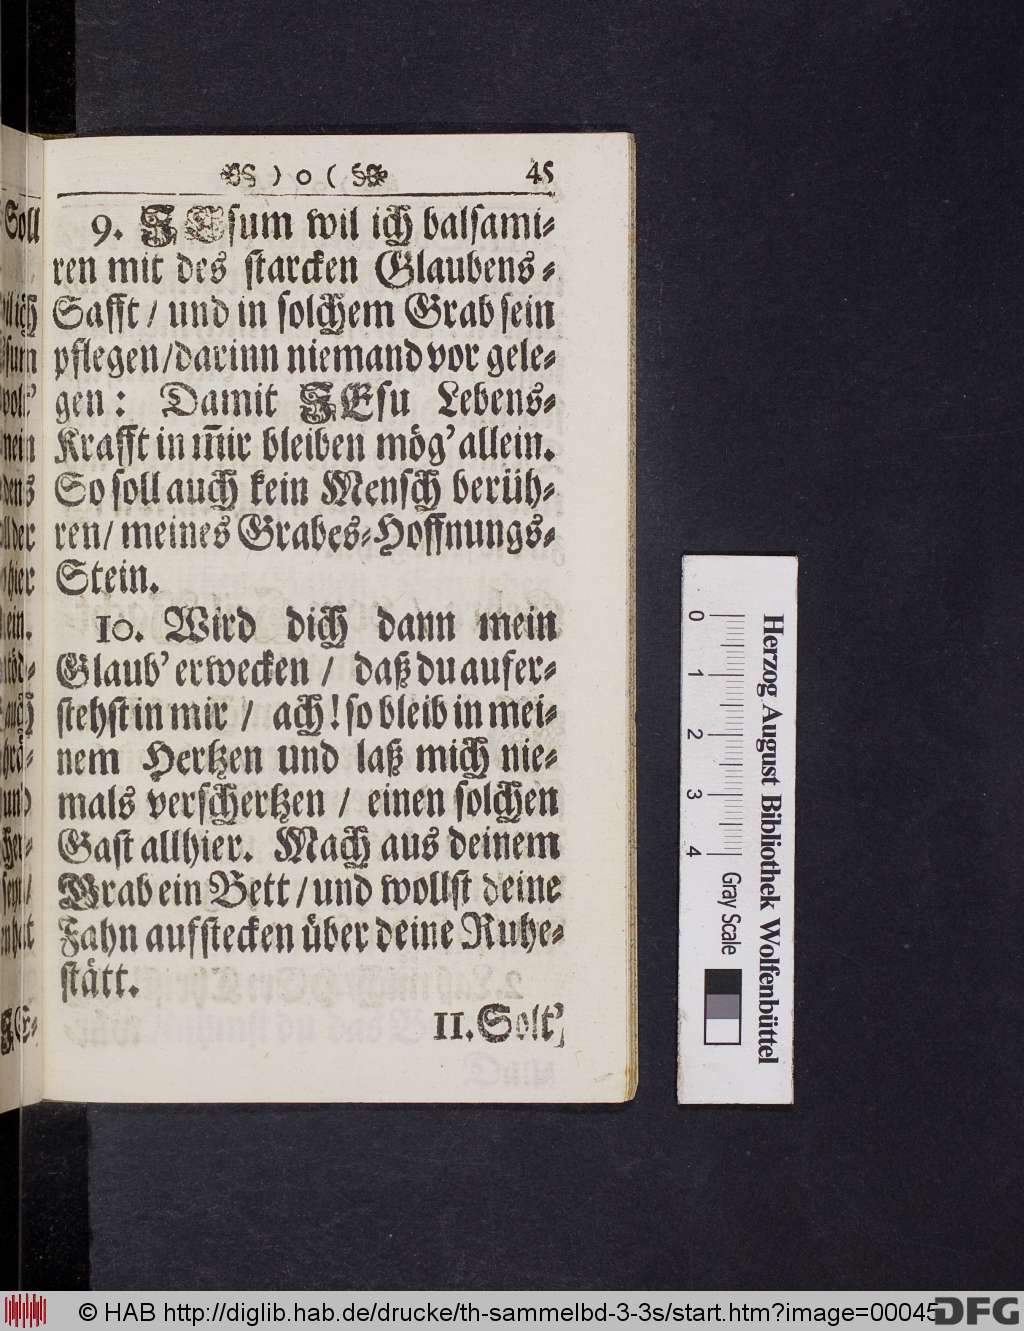 ) o ( 45
9. JEsum wil ich balsami-
ren mit des starcken Glaubens-
Safft / und in solchem Grab sein
pflegen / darinn niemand vor gele-
gen: Damit JEsu Lebens-
Krafft in mir bleiben mög' allein.
So soll auch kein Mensch berüh-
ren / meines Grabes-Hoffnungs-
Stein.
10. Wird dich dann mein
Glaub' erwecken / daß du aufer-
stehst in mir / ach! so bleib in mei-
nem Hertzen und laß mich nie-
mals verschertzen / einen solchen
Gast allhier. Mach aus deinem
Grab ein Bett / und wollst deine
Fahn aufstecken über deine Ruhe-
stätt.
11. Solt'
Soll
0 1 2 3 4 Gray Scale
Herzog August Bibliothek Wolfenbüttel
© HAB http://diglib.hab.de/drucke/th-sammelbd-3-3s/start.htm?image=00045
DFG